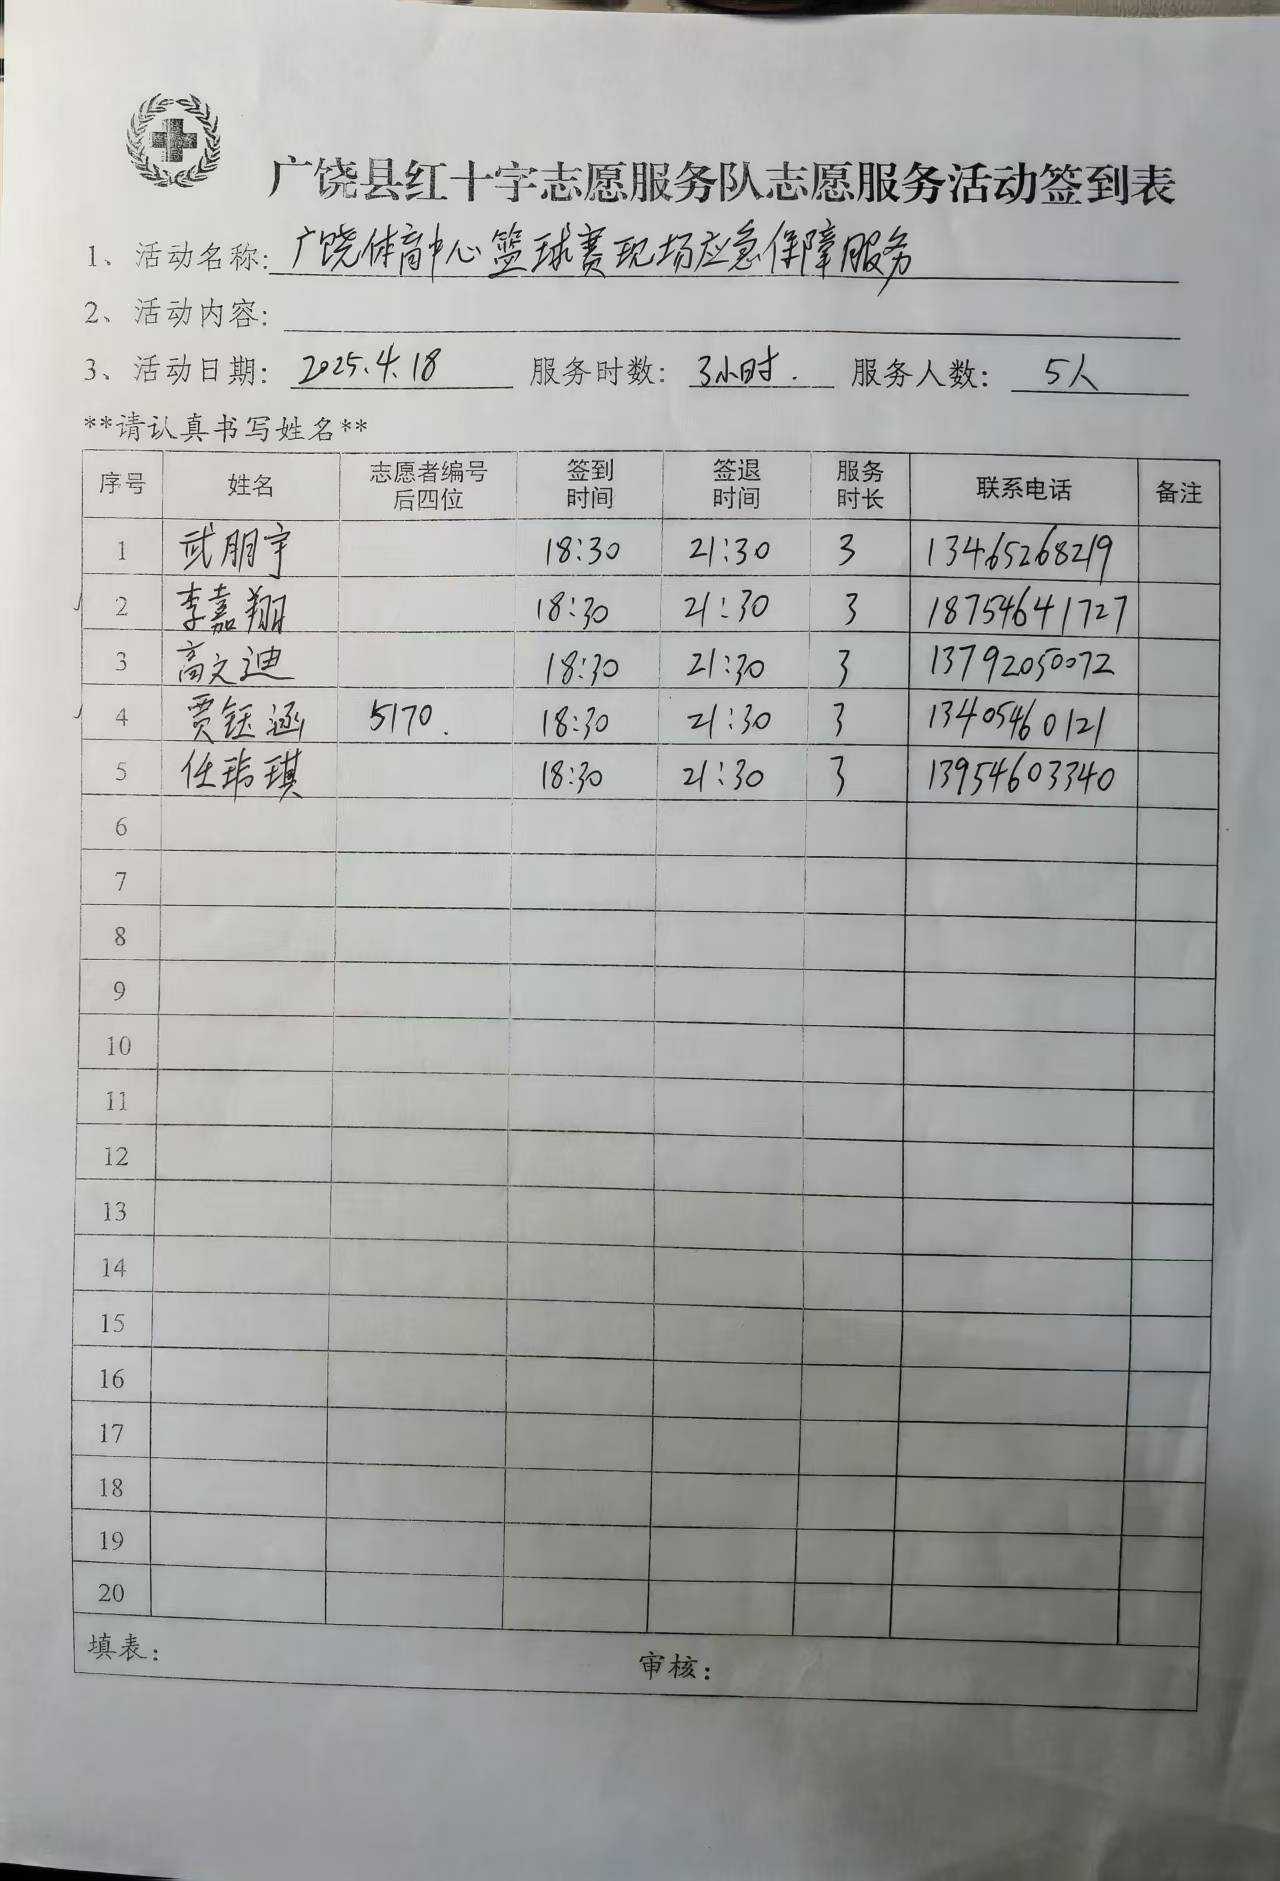 广饶县红十字志愿服务队志愿服务活动签到表
1、活动名称: 广饶体育中心篮球赛现场应急保障服务
2、活动内容:
3、活动日期: 2025.4.18 服务时数: 3小时. 服务人数: 5人
**请认真书写姓名**
序号 姓名 志愿者编号后四位 签到时间 签退时间 服务时长 联系电话 备注
1 武朋宇 18:30 21:30 3 13465268219
2 李嘉翔 18:30 21:30 3 18754641727
3 高文迪 18:30 21:30 3 13792050072
4 贾钰涵 5170. 18:30 21:30 3 13405460121
5 任玮琪 18:30 21:30 3 13954603340
6
7
8
9
10
11
12
13
14
15
16
17
18
19
20
填表： 审核：